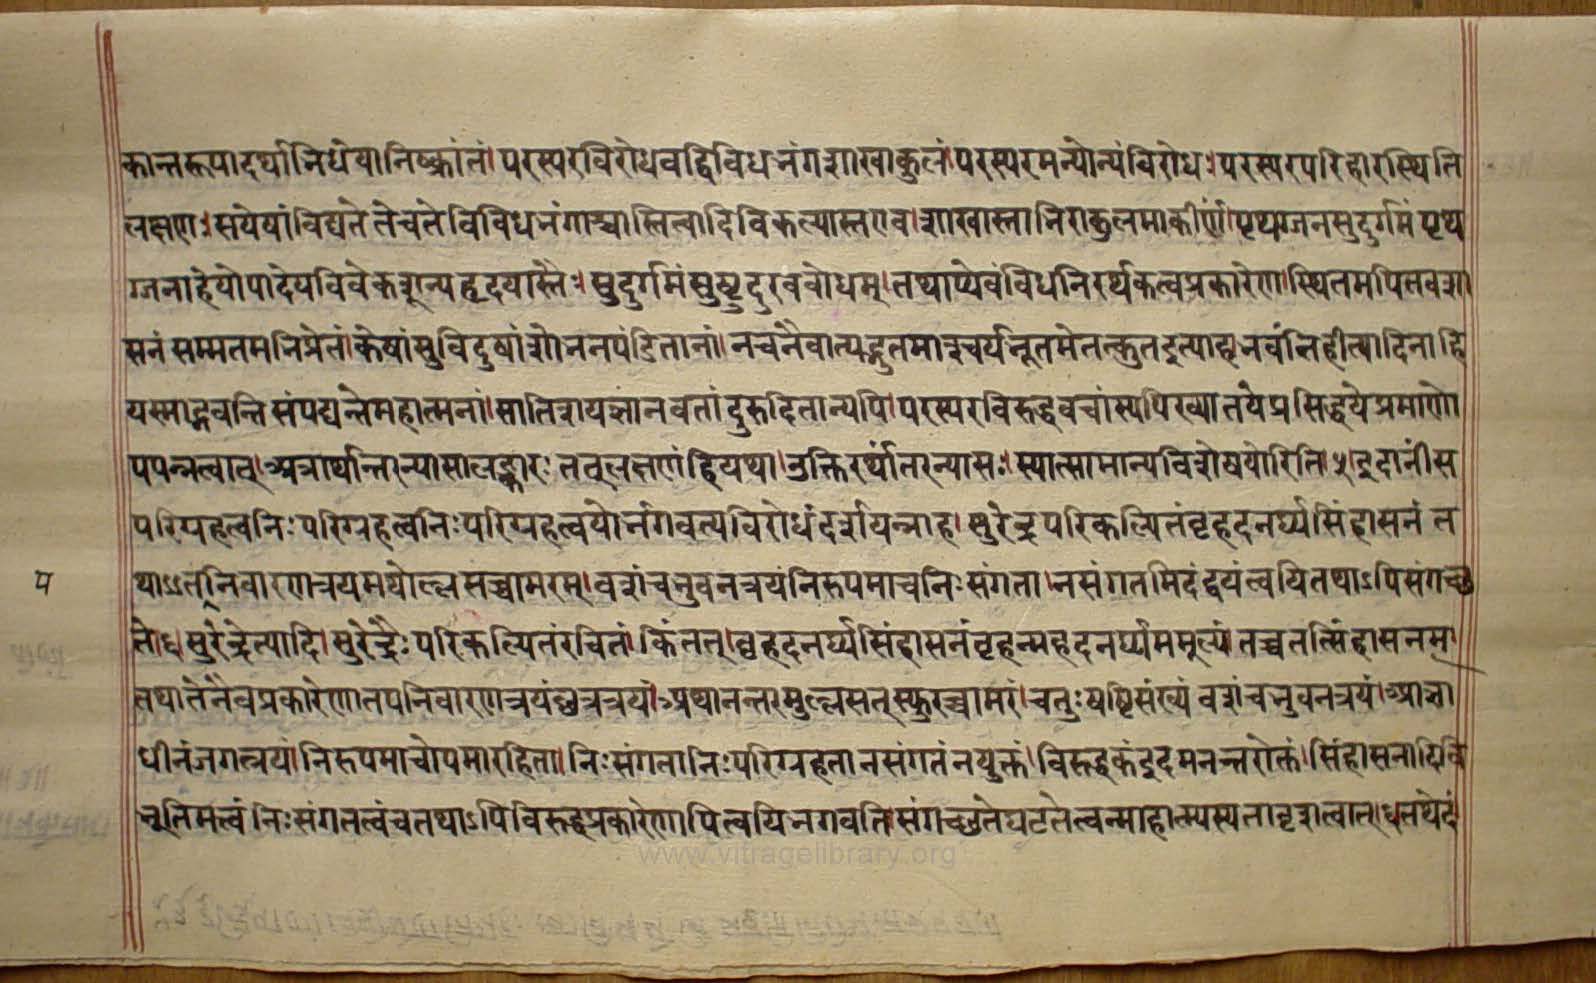 कान्तरूपादर्थाभिधेयान्निष्क्रांतं।परस्परविरोधवद्विविधभंगशाखाकुलं।परस्परमन्योन्यंविरोधः।परस्परपरिहारस्थिति
लक्षणः।सयेषांविद्यतेतेचतेविविधभंगाश्चास्तित्वादिविकल्पास्तएव।शाखास्ताभिराकुलमाकीर्णं।पृथग्जनसुदुर्गमंपृथ
ग्जनाहेयोपादेयविवेकशून्यहृदयास्तैः।सुदुर्गमंसुष्ठुदुरवबोधम्।तथाप्येवंविधनिरर्थकत्वप्रकारेण।स्थितमपितवशा
सनंसम्मतमभिप्रेतं।केषांसुविदुषांशोभनपंडितानां।नचनैवात्यद्भुतमाश्चर्यभूतमेतत्कुतइत्याह।भवंतिहीत्यादिनाहि
यस्माद्भवन्तिसंपद्यन्तेमहात्मनां।सातिशयज्ञानवतांदुरुदितान्यपि।परस्परविरुद्धवचांस्यपिख्यातयेप्रसिद्धयेप्रमाणो
पपन्नत्वात्।अत्रार्थान्तरन्यासालङ्कारः तल्लक्षणंहियथा।उक्तिरर्थांतरन्यासः।स्यात्सामान्यविशेषयोरिति।५।इदानींस
परिग्रहत्वनिःपरिग्रहत्वनिःपरिग्रहत्वयोर्भगवत्यविरोधंदर्शयन्नाह।सुरेंद्रपरिकल्पितंबृहदनर्घ्यसिंहासनंत
थाऽतनिवारणत्रयमथोल्लसच्चामरम्।वशंचभुवनत्रयंनिरुपमाचनिःसंगता।नसंगतमिदंद्वयंत्वयितथाऽपिसंगच्छ
प
ते।६।सुरेंद्रेत्यादि।सुरेंद्रैःपरिकल्पितंरचितं।किंतत्।बृहदनर्घ्यसिंहासनंबृहन्महदनर्घ्यममूल्यंतच्चतत्सिंहासनम्
तथातेनैवप्रकारेणातपनिवारणत्रयंछत्रत्रयं।अथानन्तरमुल्लसत्स्फुरच्चामरं।चतुःषष्टिसंख्यंवशंचभुवनत्रयं।आज्ञा
धीनंजगत्त्रयं।निरुपमाचोपमारहिता।निःसंगतानिःपरिग्रहतानसंगतंनयुक्तं।विरुद्धकंइदमनन्तरोक्तं।सिंहासनादिवि
भूतिमत्त्वंनिःसंगतत्वंचतथाऽपिविरुद्धप्रकारेणापित्वयिभगवति।संगच्छतेघटतेत्वन्माहात्म्यस्यतादृशत्वात्।६।तथेदं
www.vitragelibrary.org